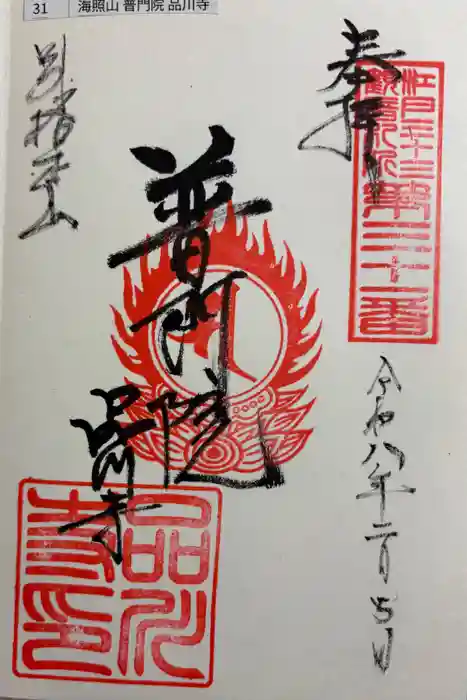 31 海照山 普門院 品川寺
奉拝
江戸三十三
観音札所
第三十一番
令和八年二月
普門院
品川寺
別格本山
品川
寺印